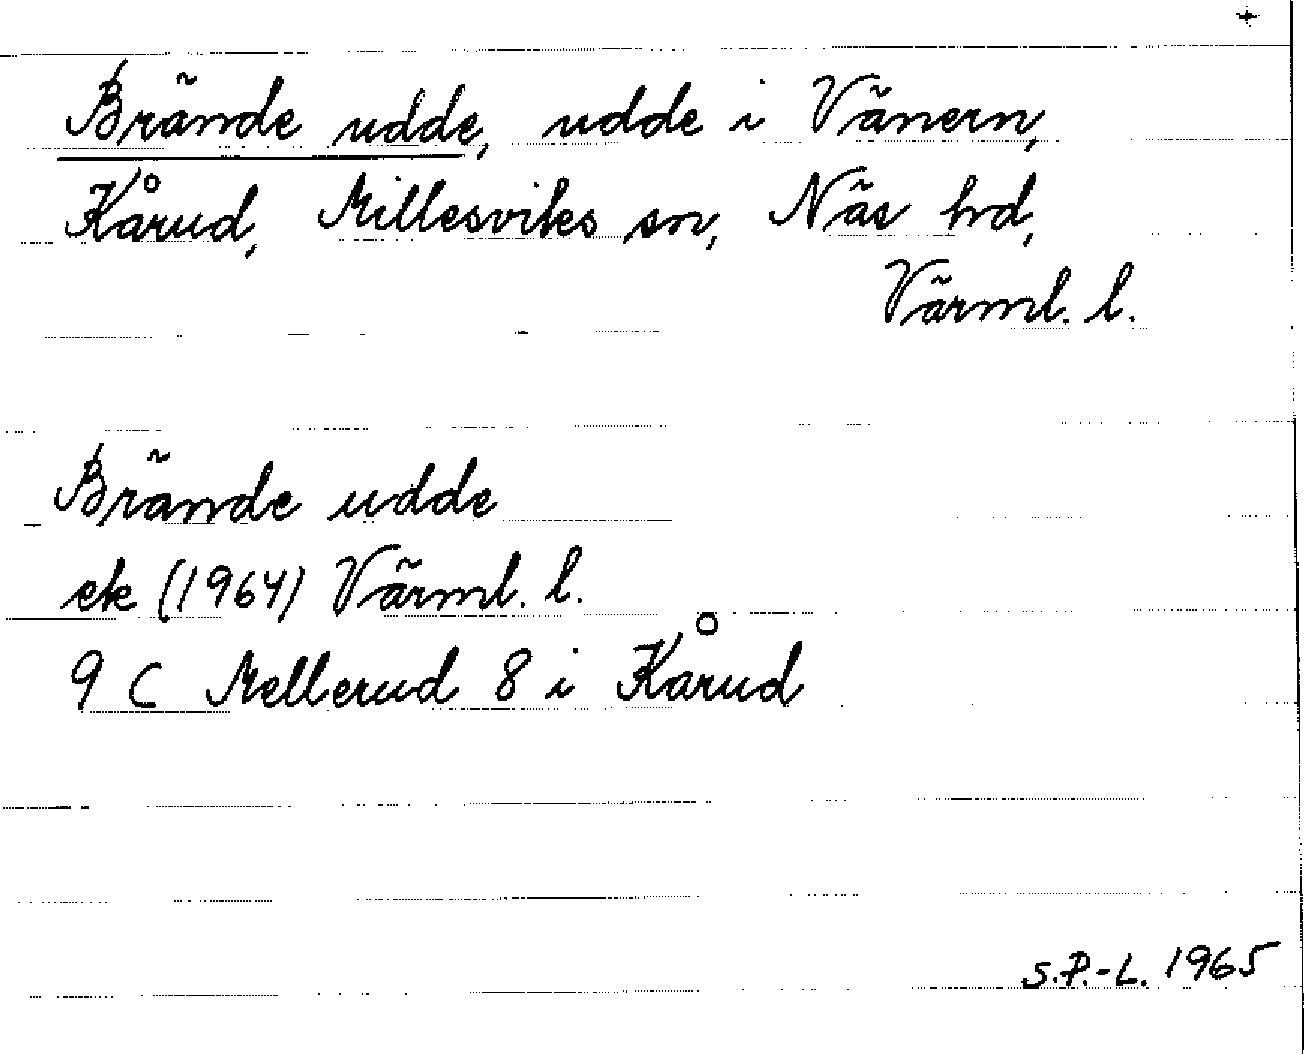 +
Brände udde, udde i Vänern,
Kårud, Millesviks sn, Näs hd,
Värml. l.
Brände udde
ek (1964) Värml. l.
9 C Mellerud 8 i Kårud
S.P.-L. 1965